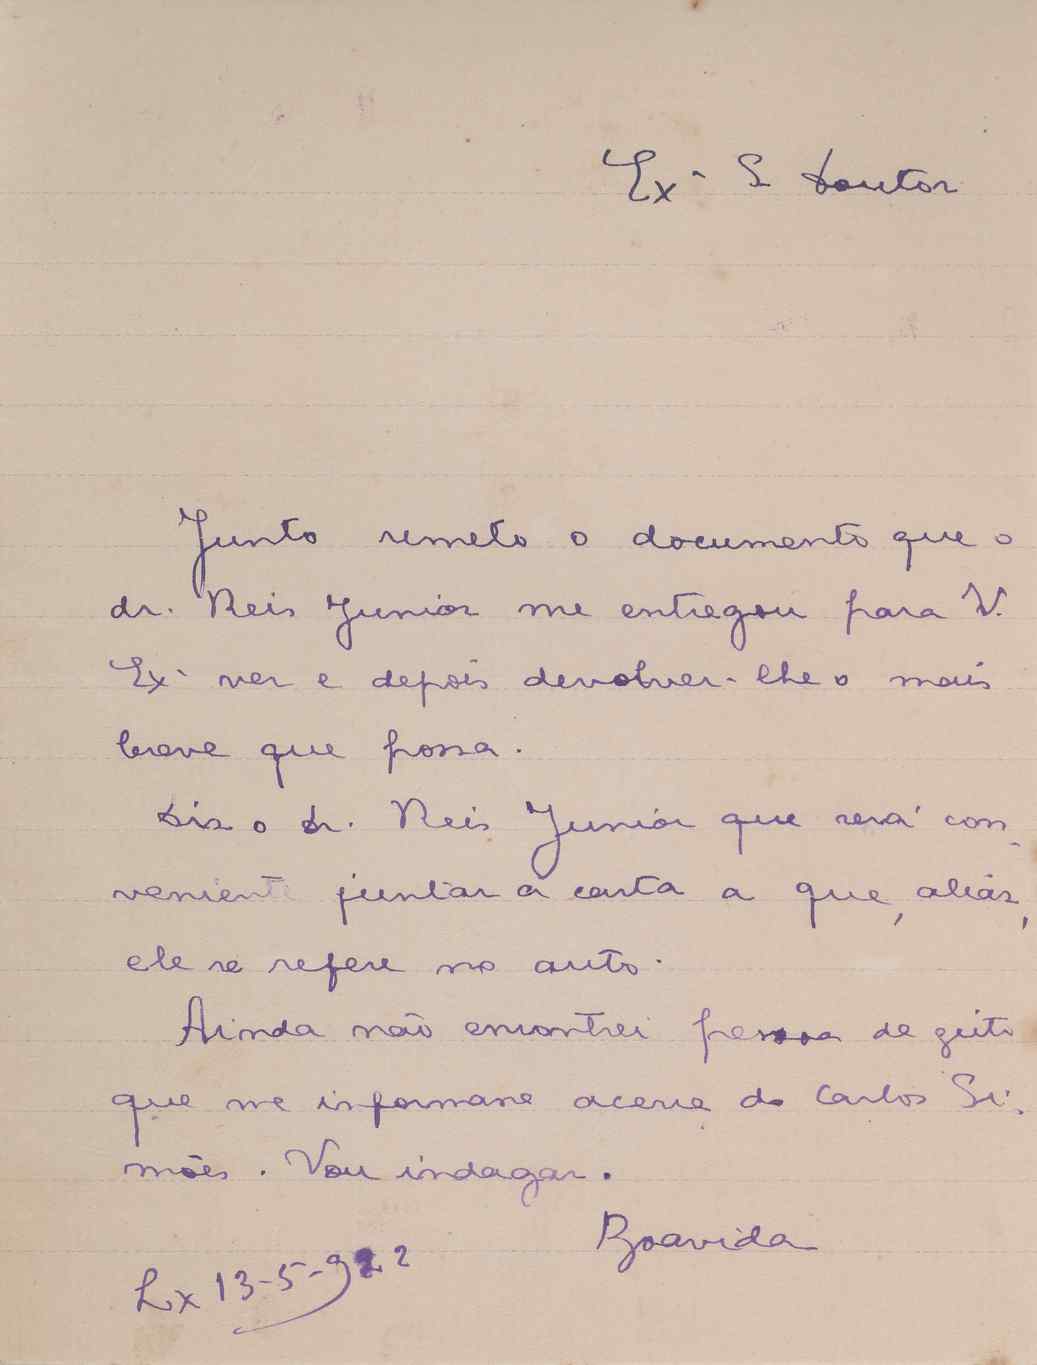 Ex- S Doutor
Junto remeto o documento que o
dr. Reis Junior me entregou para V.
Ex- ver e depois devolver-lhe o mais
breve que possa.
Diz o dr. Reis Junior que será con-
veniente juntar a carta a que, aliás,
ele se refere no auto.
Ainda não encontrei pessoa de geito
que me informasse acerca do Carlos Si-
mões. Vou indagar.
Boavida
Lx 13-5-922